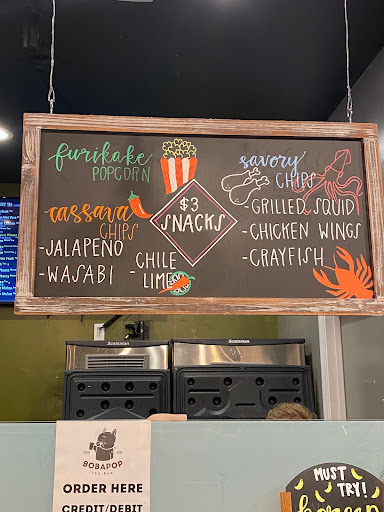 furikake
POPCORN
cassava
CHIPS
-JALAPEÑO
-WASABI
-CHILE
LIME
$3
SNACKS
savory
CHIPS
-GRILLED SQUID
-CHICKEN WINGS
-CRAYFISH
Scotsman
Scotsman
BOBAPOP
TEA BAR
ORDER HERE
CREDIT/DEBIT
MUST
TRY!